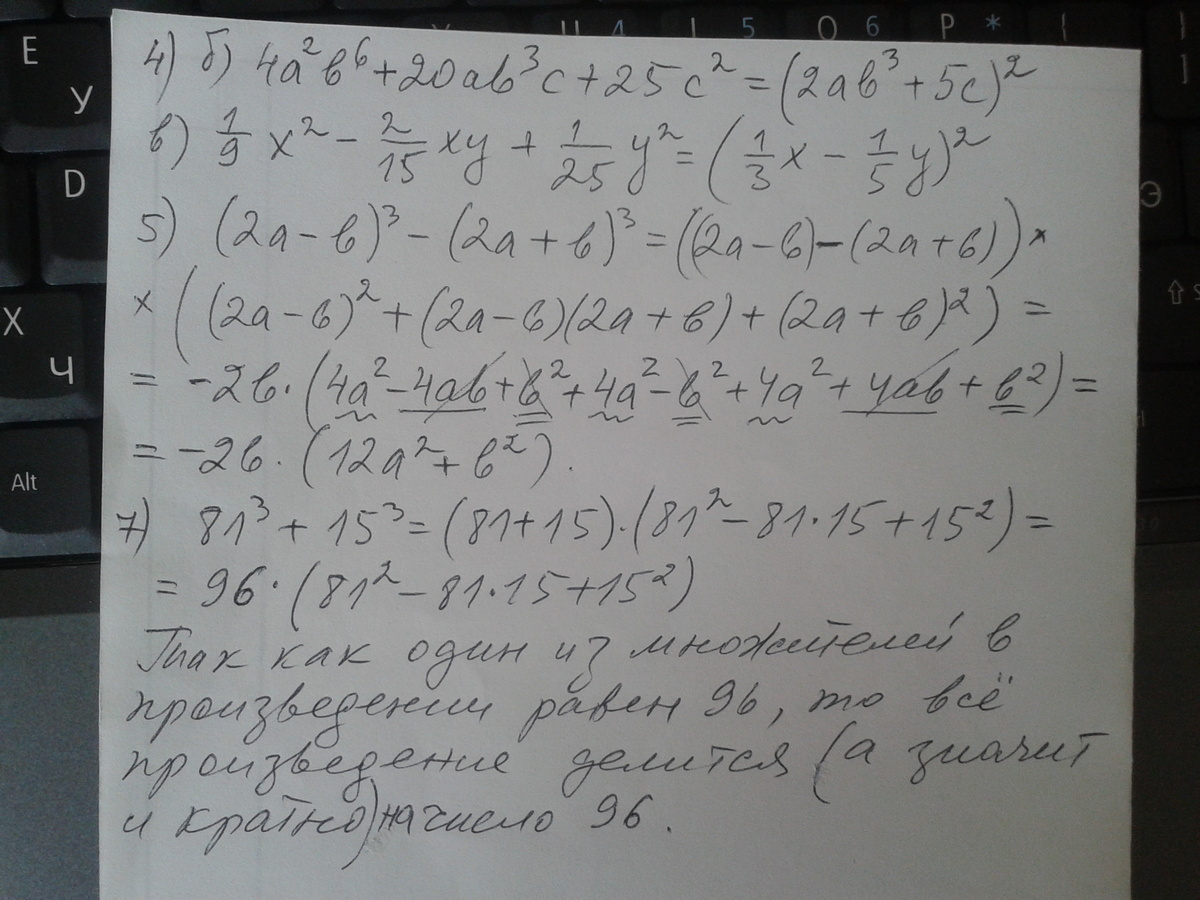 Е У Ц 4 Ш 5 О 6 Р * { [ } ]
4) б) 4a²b⁶ + 20ab³c + 25c² = (2ab³ + 5c)²
в) 1/9 x² - 2/15 xy + 1/25 y² = (1/3 x - 1/5 y)²
D
Э
5) (2a - b)³ - (2a + b)³ = ((2a - b) - (2a + b)) ×
× ((2a - b)² + (2a - b)(2a + b) + (2a + b)²) =
Х Ч
= -2b · (4a² - 4ab + b² + 4a² - b² + 4a² + 4ab + b²) =
= -2b · (12a² + b²).
Alt
7) 81³ + 15³ = (81 + 15) · (81² - 81 · 15 + 15²) =
= 96 · (81² - 81 · 15 + 15²)
Так как один из множителей в
произведении равен 96, то всё
произведение делится (а значит
и кратно) на число 96.